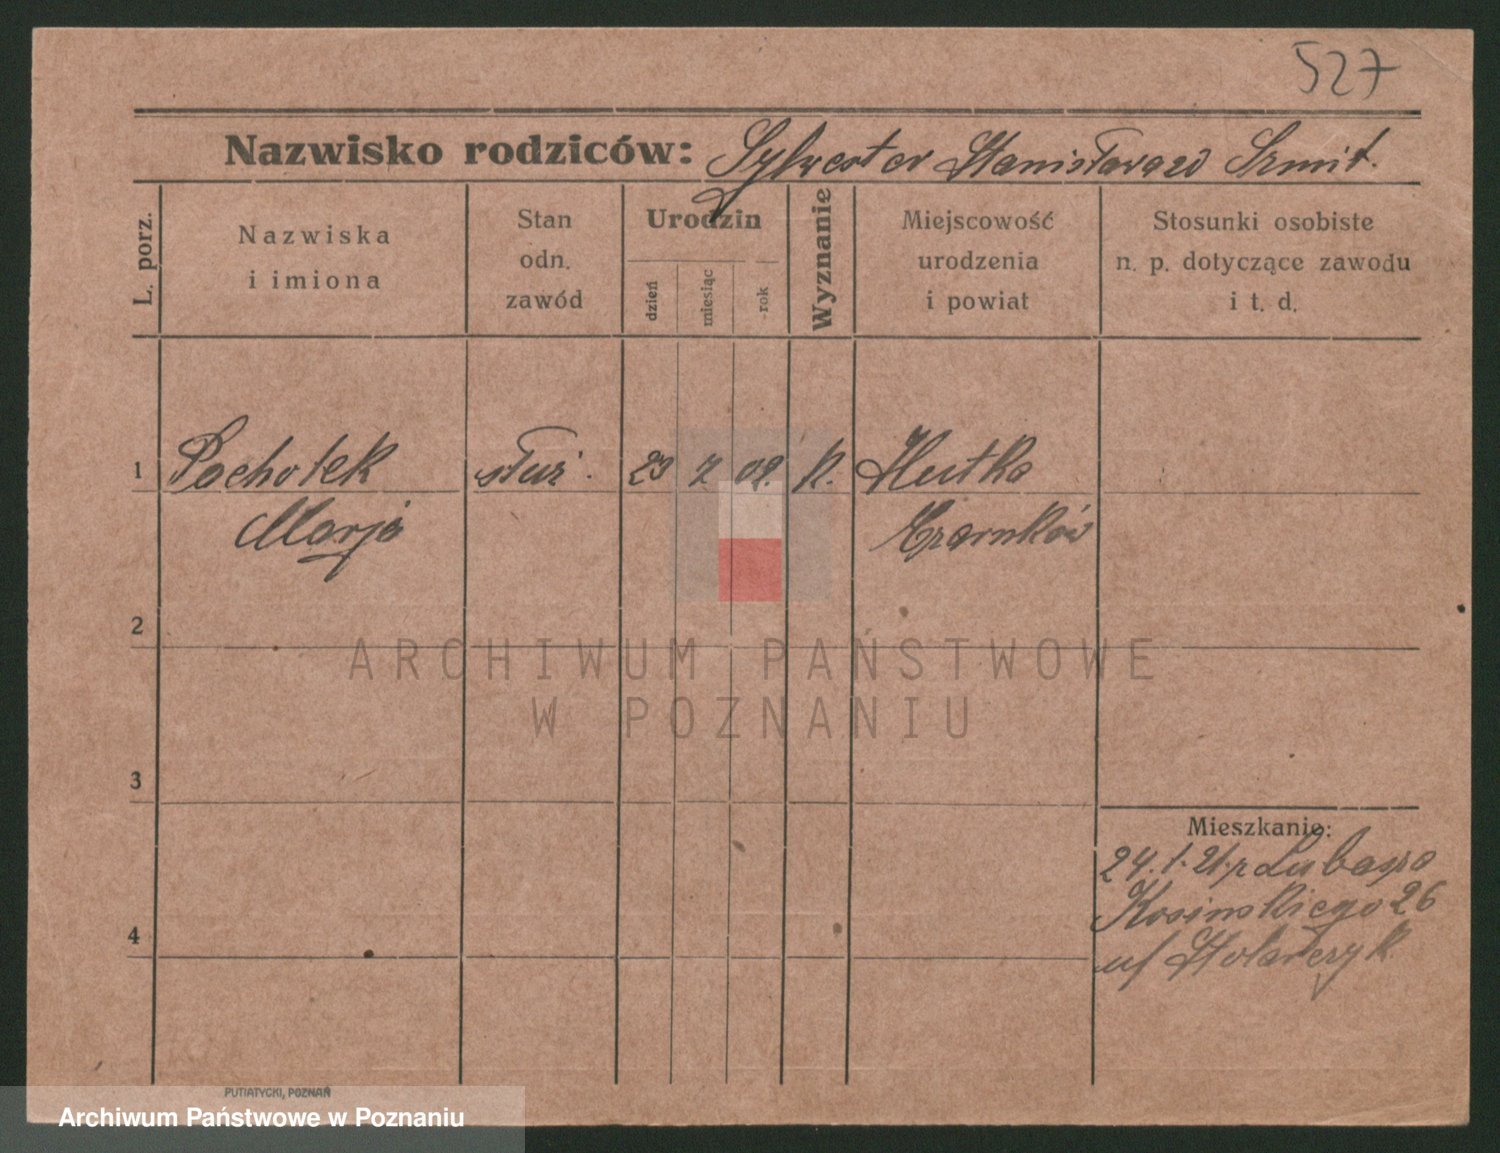 527
Nazwisko rodziców: Sylwester Stanisława zd Szmit.
L. porz.
Nazwiska
i imiona
Stan
odn.
zawód
Urodzin
dzień
miesiąc
rok
Wyznanie
Miejscowość
urodzenia
i powiat
Stosunki osobiste
n. p. dotyczące zawodu
i t. d.
1 Pachołek służ. 29 7 09. k. Hutka
Marja Czarnków
2
ARCHIWUM PAŃSTWOWE
W POZNANIU
3
Mieszkanie:
24.1.21. z Lubasza
Kosińskiego 26
u/
4
PUTIATYCKI, POZNAŃ
Archiwum Państwowe w Poznaniu